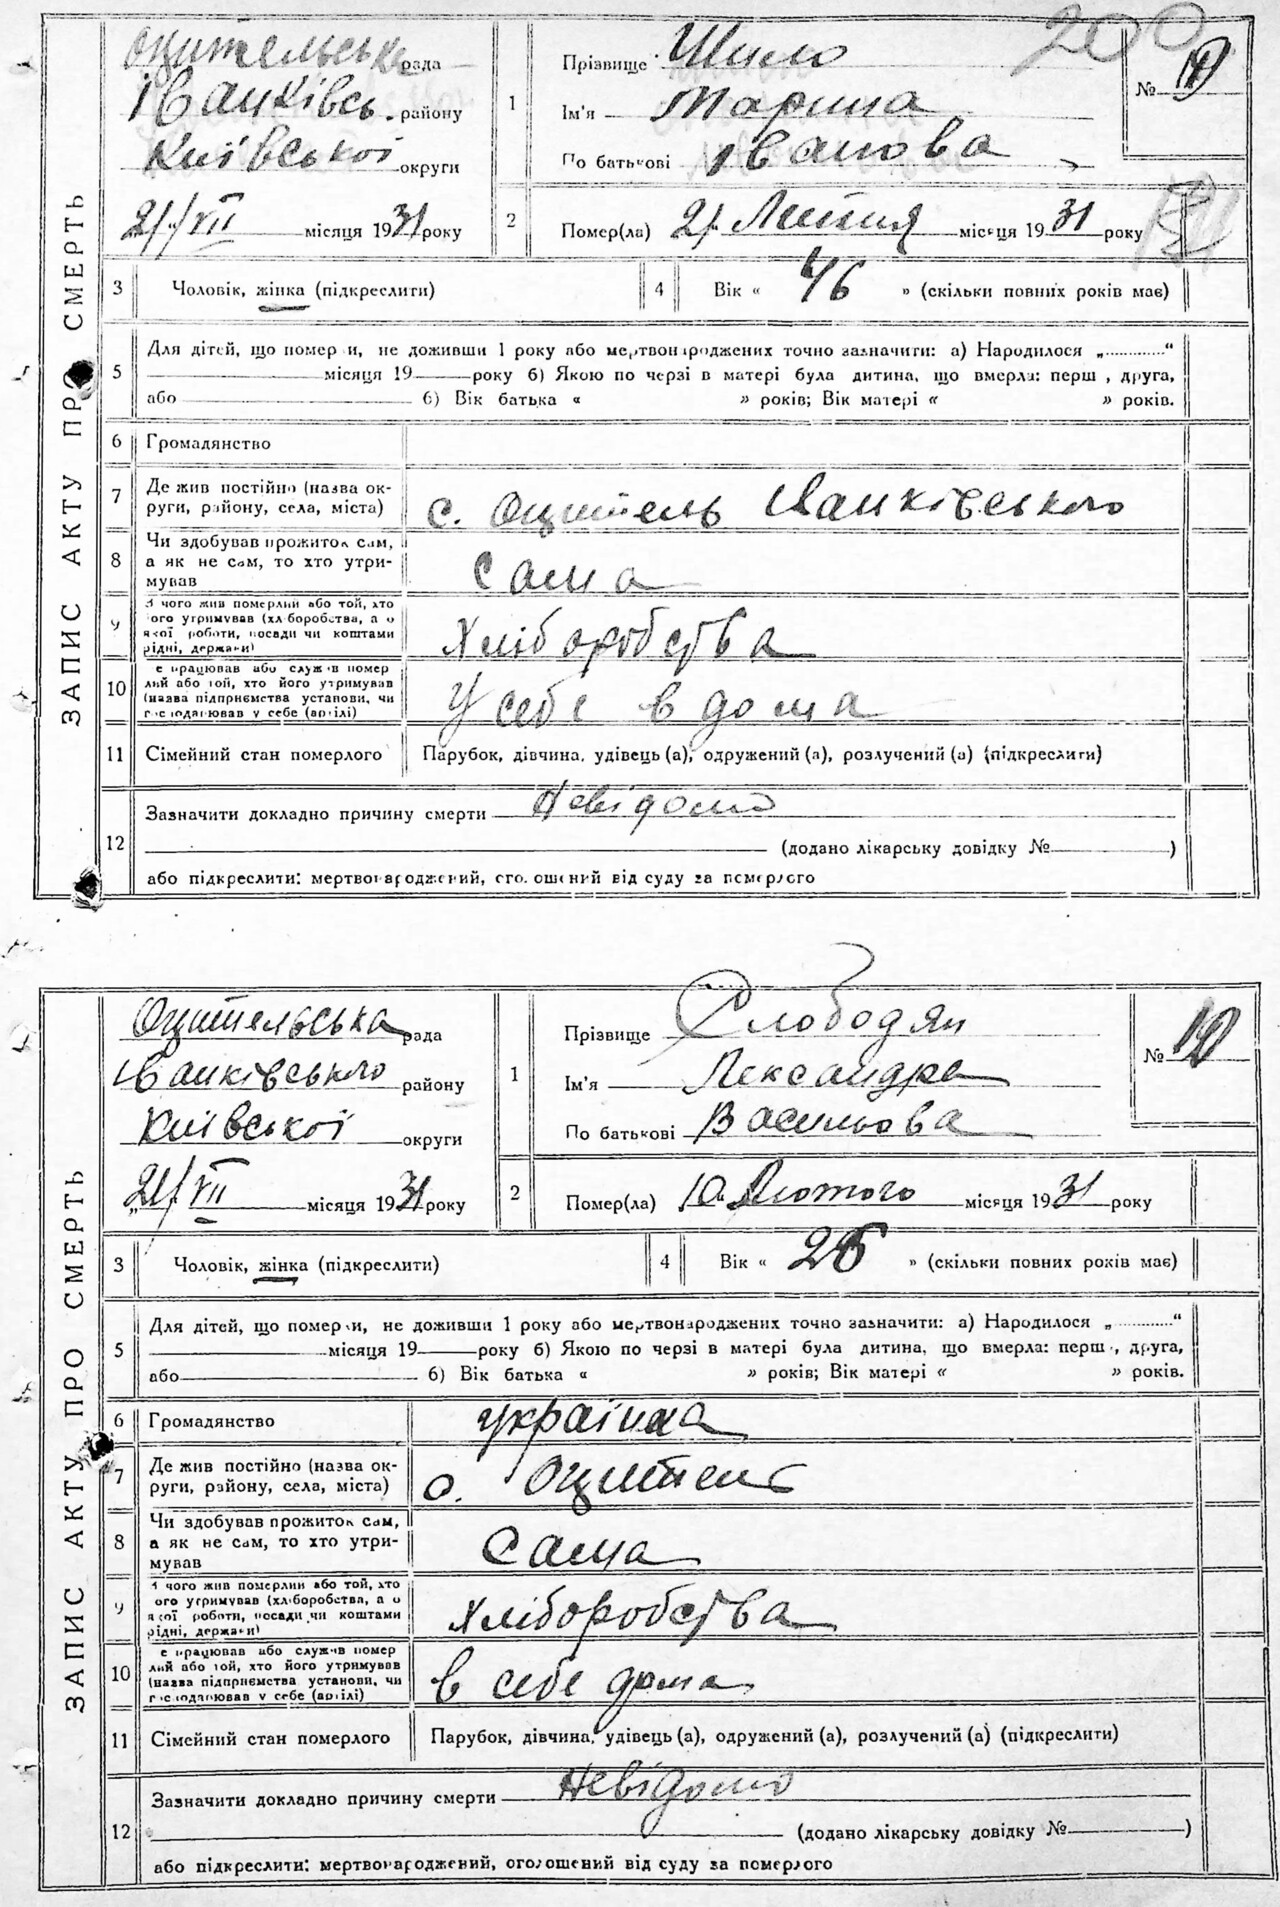 200
ЗАПИС АКТУ ПРО СМЕРТЬ
Оцительська рада
Іванківсь. району
Київської округи
21/VII місяця 1931 року
1
Прізвище Шило
Ім'я Марина
По батькові Іванова
№
2
Помер(ла) 21 Липня місяця 1931 року
3
Чоловік, жінка (підкреслити)
4
Вік « 46 » (скільки повних років має)
5
Для дітей, що померли, не доживши 1 року або мертвонароджених точно зазначити: а) Народилося „ “
місяця 19 року б) Якою по черзі в матері була дитина, що вмерла: перш , друга,
або б) Вік батька « » років; Вік матері « » років.
6
Громадянство
7
Де жив постійно (назва ок-
руги, району, села, міста)
с. Оцитель Іванківського
8
Чи здобував прожиток сам,
а як не сам, то хто утри-
мував
Сама
9
З чого жив померлий або той, хто
ого утримував (хліборобства, а о
якої роботи, посади чи коштами
рідні, держави)
Хліборобства
10
е працював або служив помер
лий або той, хто його утримував
(назва підприємства установи, чи
господарював у себе (артілі)
У себе в дома
11
Сімейний стан померлого
Парубок, дівчина, удівець (а), одружений (а), розлучений (а) (підкреслити)
12
Зазначити докладно причину смерти Невідомо
(додано лікарську довідку № )
або підкреслити: мертвонароджений, оголошений від суду за померлого
ЗАПИС АКТУ ПРО СМЕРТЬ
Оцительська рада
Іванківського району
Київської округи
21/VII місяця 1931 року
1
Прізвище Слободян
Ім'я Лександра
По батькові Васильова
№
2
Помер(ла) 10 Лютого місяця 1931 року
3
Чоловік, жінка (підкреслити)
4
Вік « 26 » (скільки повних років має)
5
Для дітей, що померли, не доживши 1 року або мертвонароджених точно зазначити: а) Народилося „ “
місяця 19 року б) Якою по черзі в матері була дитина, що вмерла: перш , друга,
або б) Вік батька « » років; Вік матері « » років.
6
Громадянство
україна
7
Де жив постійно (назва ок-
руги, району, села, міста)
с. Оцитель
8
Чи здобував прожиток сам,
а як не сам, то хто утри-
мував
Сама
9
З чого жив померлий або той, хто
ого утримував (хліборобства, а о
якої роботи, посади чи коштами
рідні, держави)
Хліборобства
10
е працював або служив помер
лий або той, хто його утримував
(назва підприємства установи, чи
господарював у себе (артілі)
в себе дома
11
Сімейний стан померлого
Парубок, дівчина, удівець (а), одружений (а), розлучений (а) (підкреслити)
12
Зазначити докладно причину смерти Невідомо
(додано лікарську довідку № )
або підкреслити: мертвонароджений, оголошений від суду за померлого